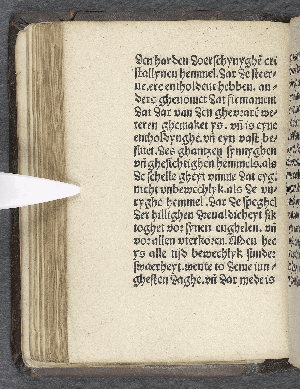 den harden doerschynyghē cri
stallynen hemmel. dar de steer-
ne. ere entholdent hebben. an-
ders ghenomet dat firmament
dat dar van den ghewarē we-
teren ghemaket ys. vñ is eyne
entholdynghe. vñ eyn vast be-
slut. des ghantzen synnyghen
vñ ghesichtighen hemmels. als
de schelle gheyt vmme dat eyg.
nicht vnbewechlyk. als de vü-
ryghe hemmel. dar de speghel
der hillighen dreualdicheyt sik
toghet vor synen enghelen. vñ
vor allen vterkoren. Men hee
ys alle tijd bewechlyk sunder
swaerheyt. wente to deme iun-
ghesten daghe. vñ dar mede is